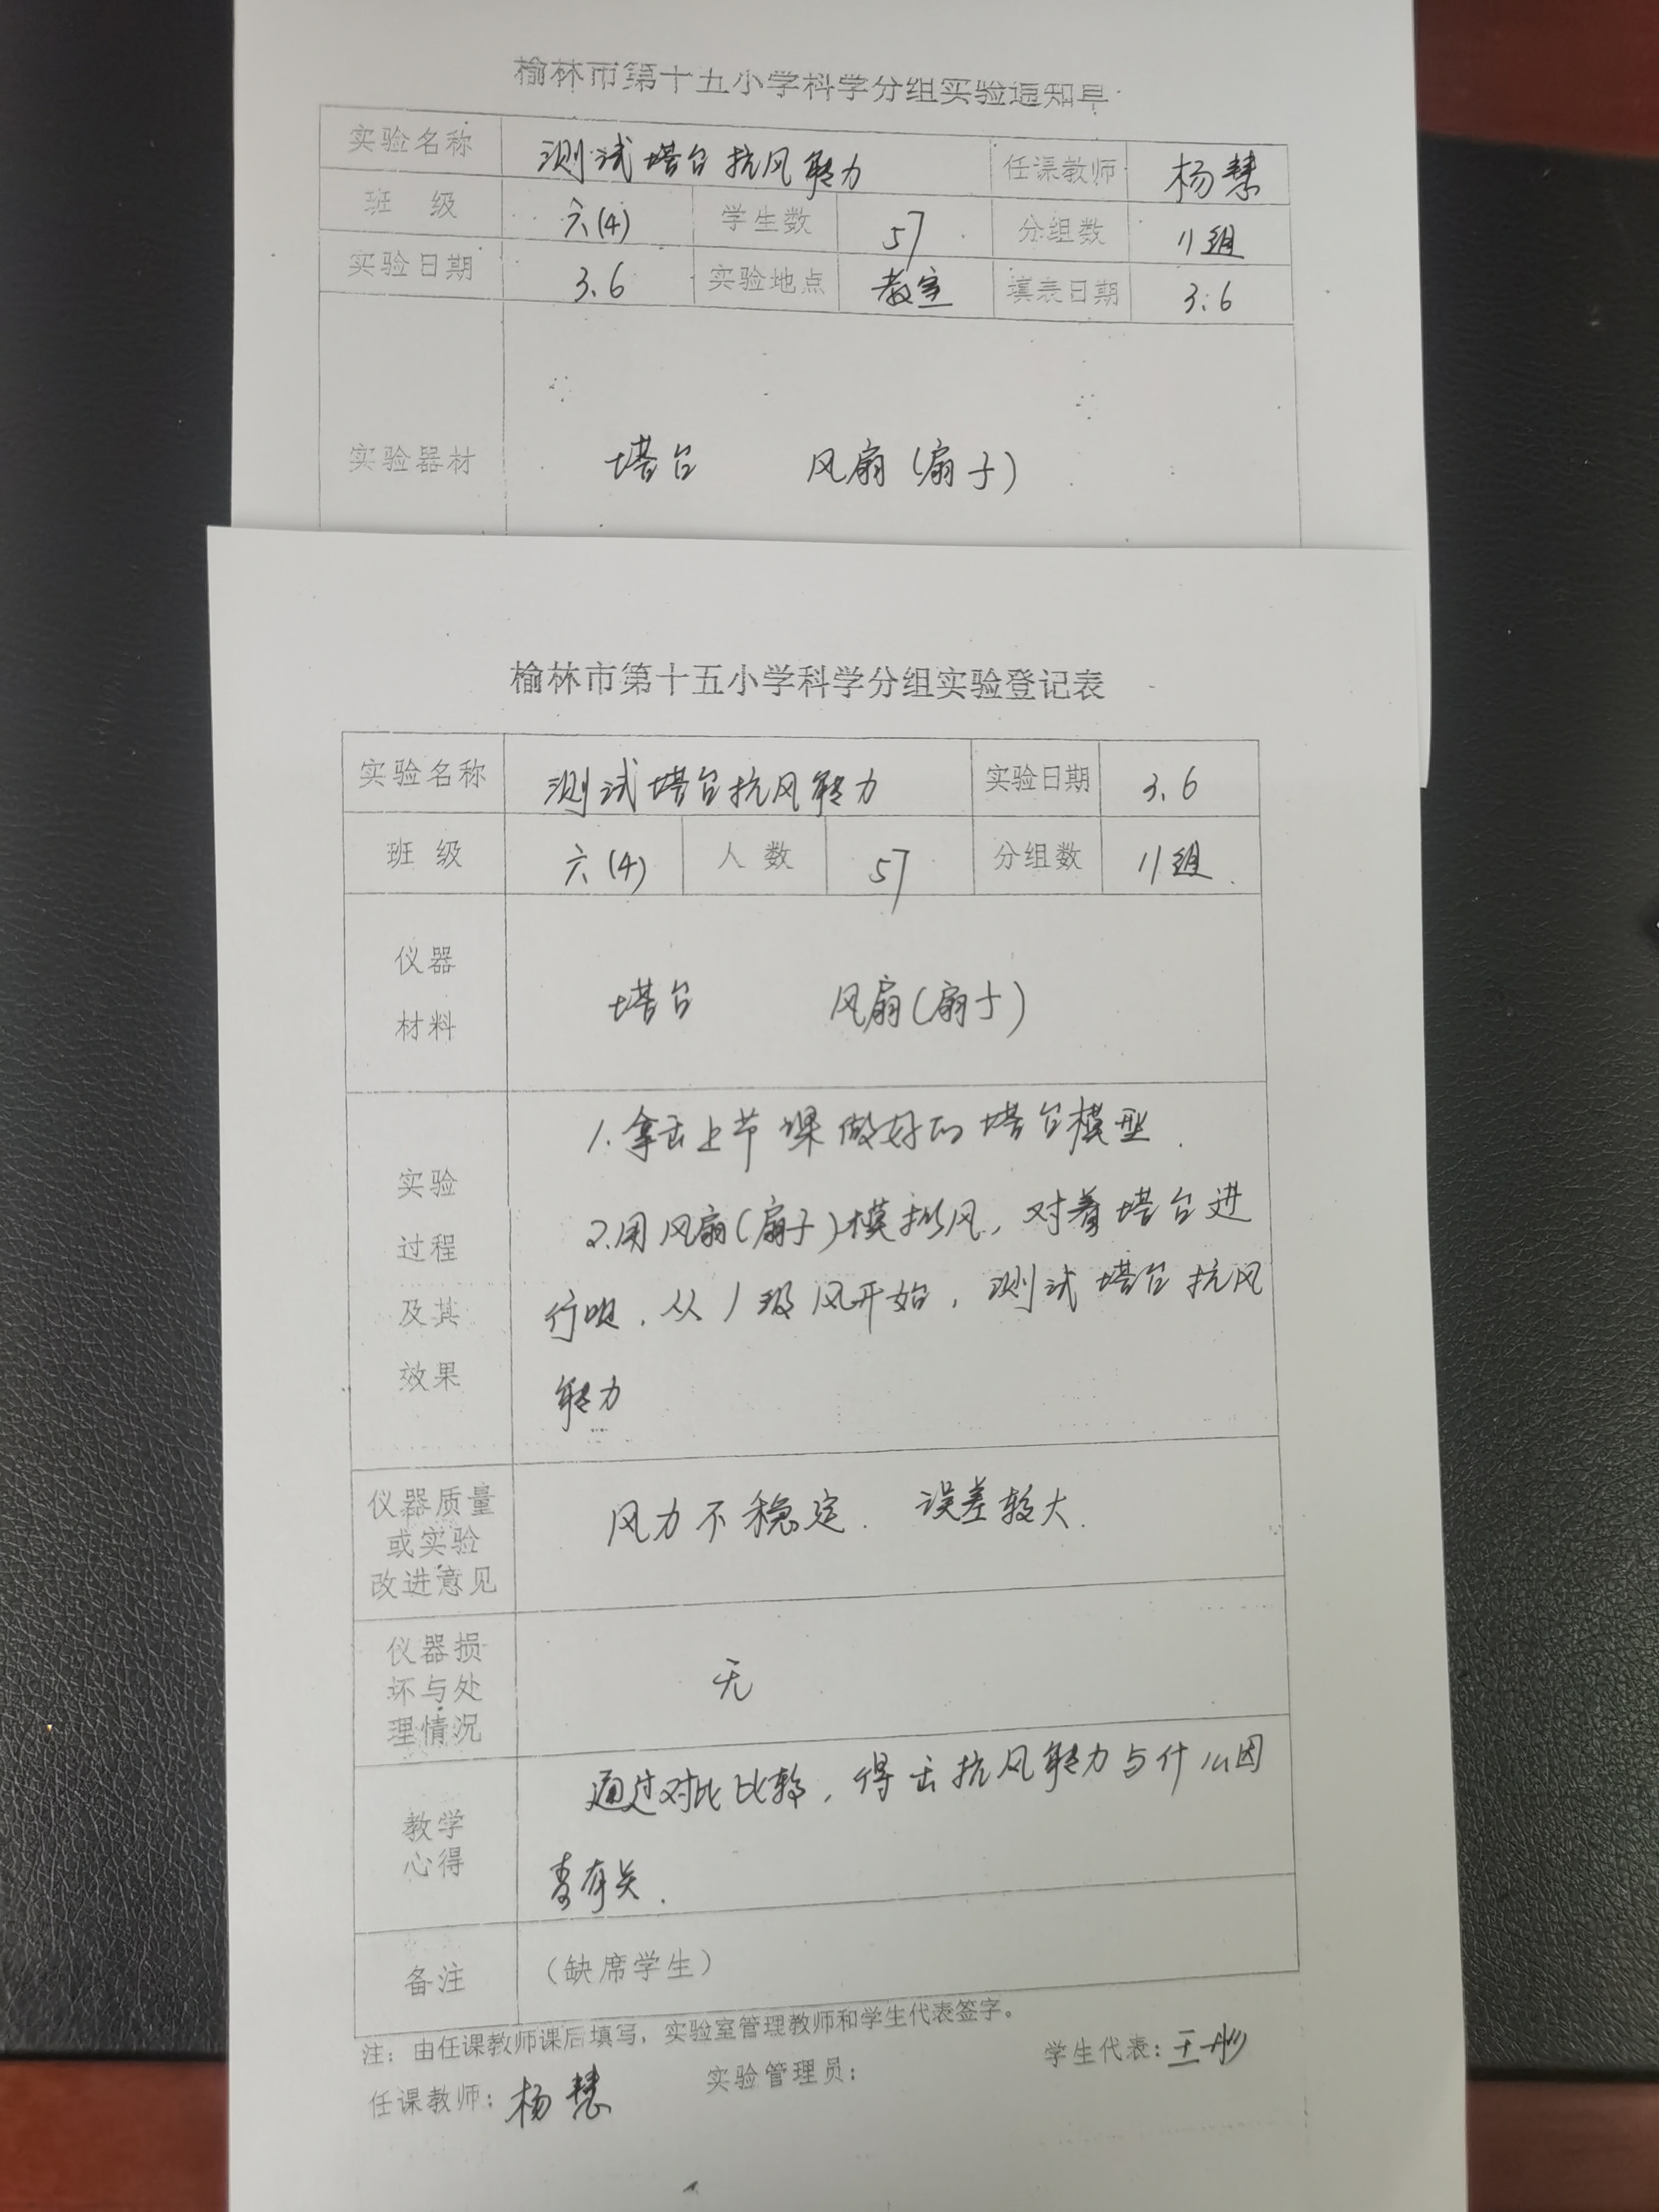 榆林市第十五小学科学分组实验通知单
实验名称 测试塔台抗风能力 任课教师 杨慧
班 级 六(4) 学生数 57 分组数 11组
实验日期 3.6 实验地点 教室 填表日期 3.6
实验器材 塔台 风扇(扇子)
榆林市第十五小学科学分组实验登记表
实验名称 测试塔台抗风能力 实验日期 3.6
班 级 六(4) 人 数 57 分组数 11组
仪器
材料
塔台 风扇(扇子)
实验
过程
及其
效果
1.拿出上节课做好的塔台模型.
2.用风扇(扇子)模拟风,对着塔台进
行吹.从1级风开始,测试塔台抗风
能力
仪器质量
或实验
改进意见
风力不稳定. 误差较大.
仪器损
坏与处
理情况
无
教学
心得
通过对比比较,得出抗风能力与什么因
素有关.
备注 (缺席学生)
注:由任课教师课后填写,实验室管理教师和学生代表签字。
任课教师:杨慧 实验管理员: 学生代表:王彤